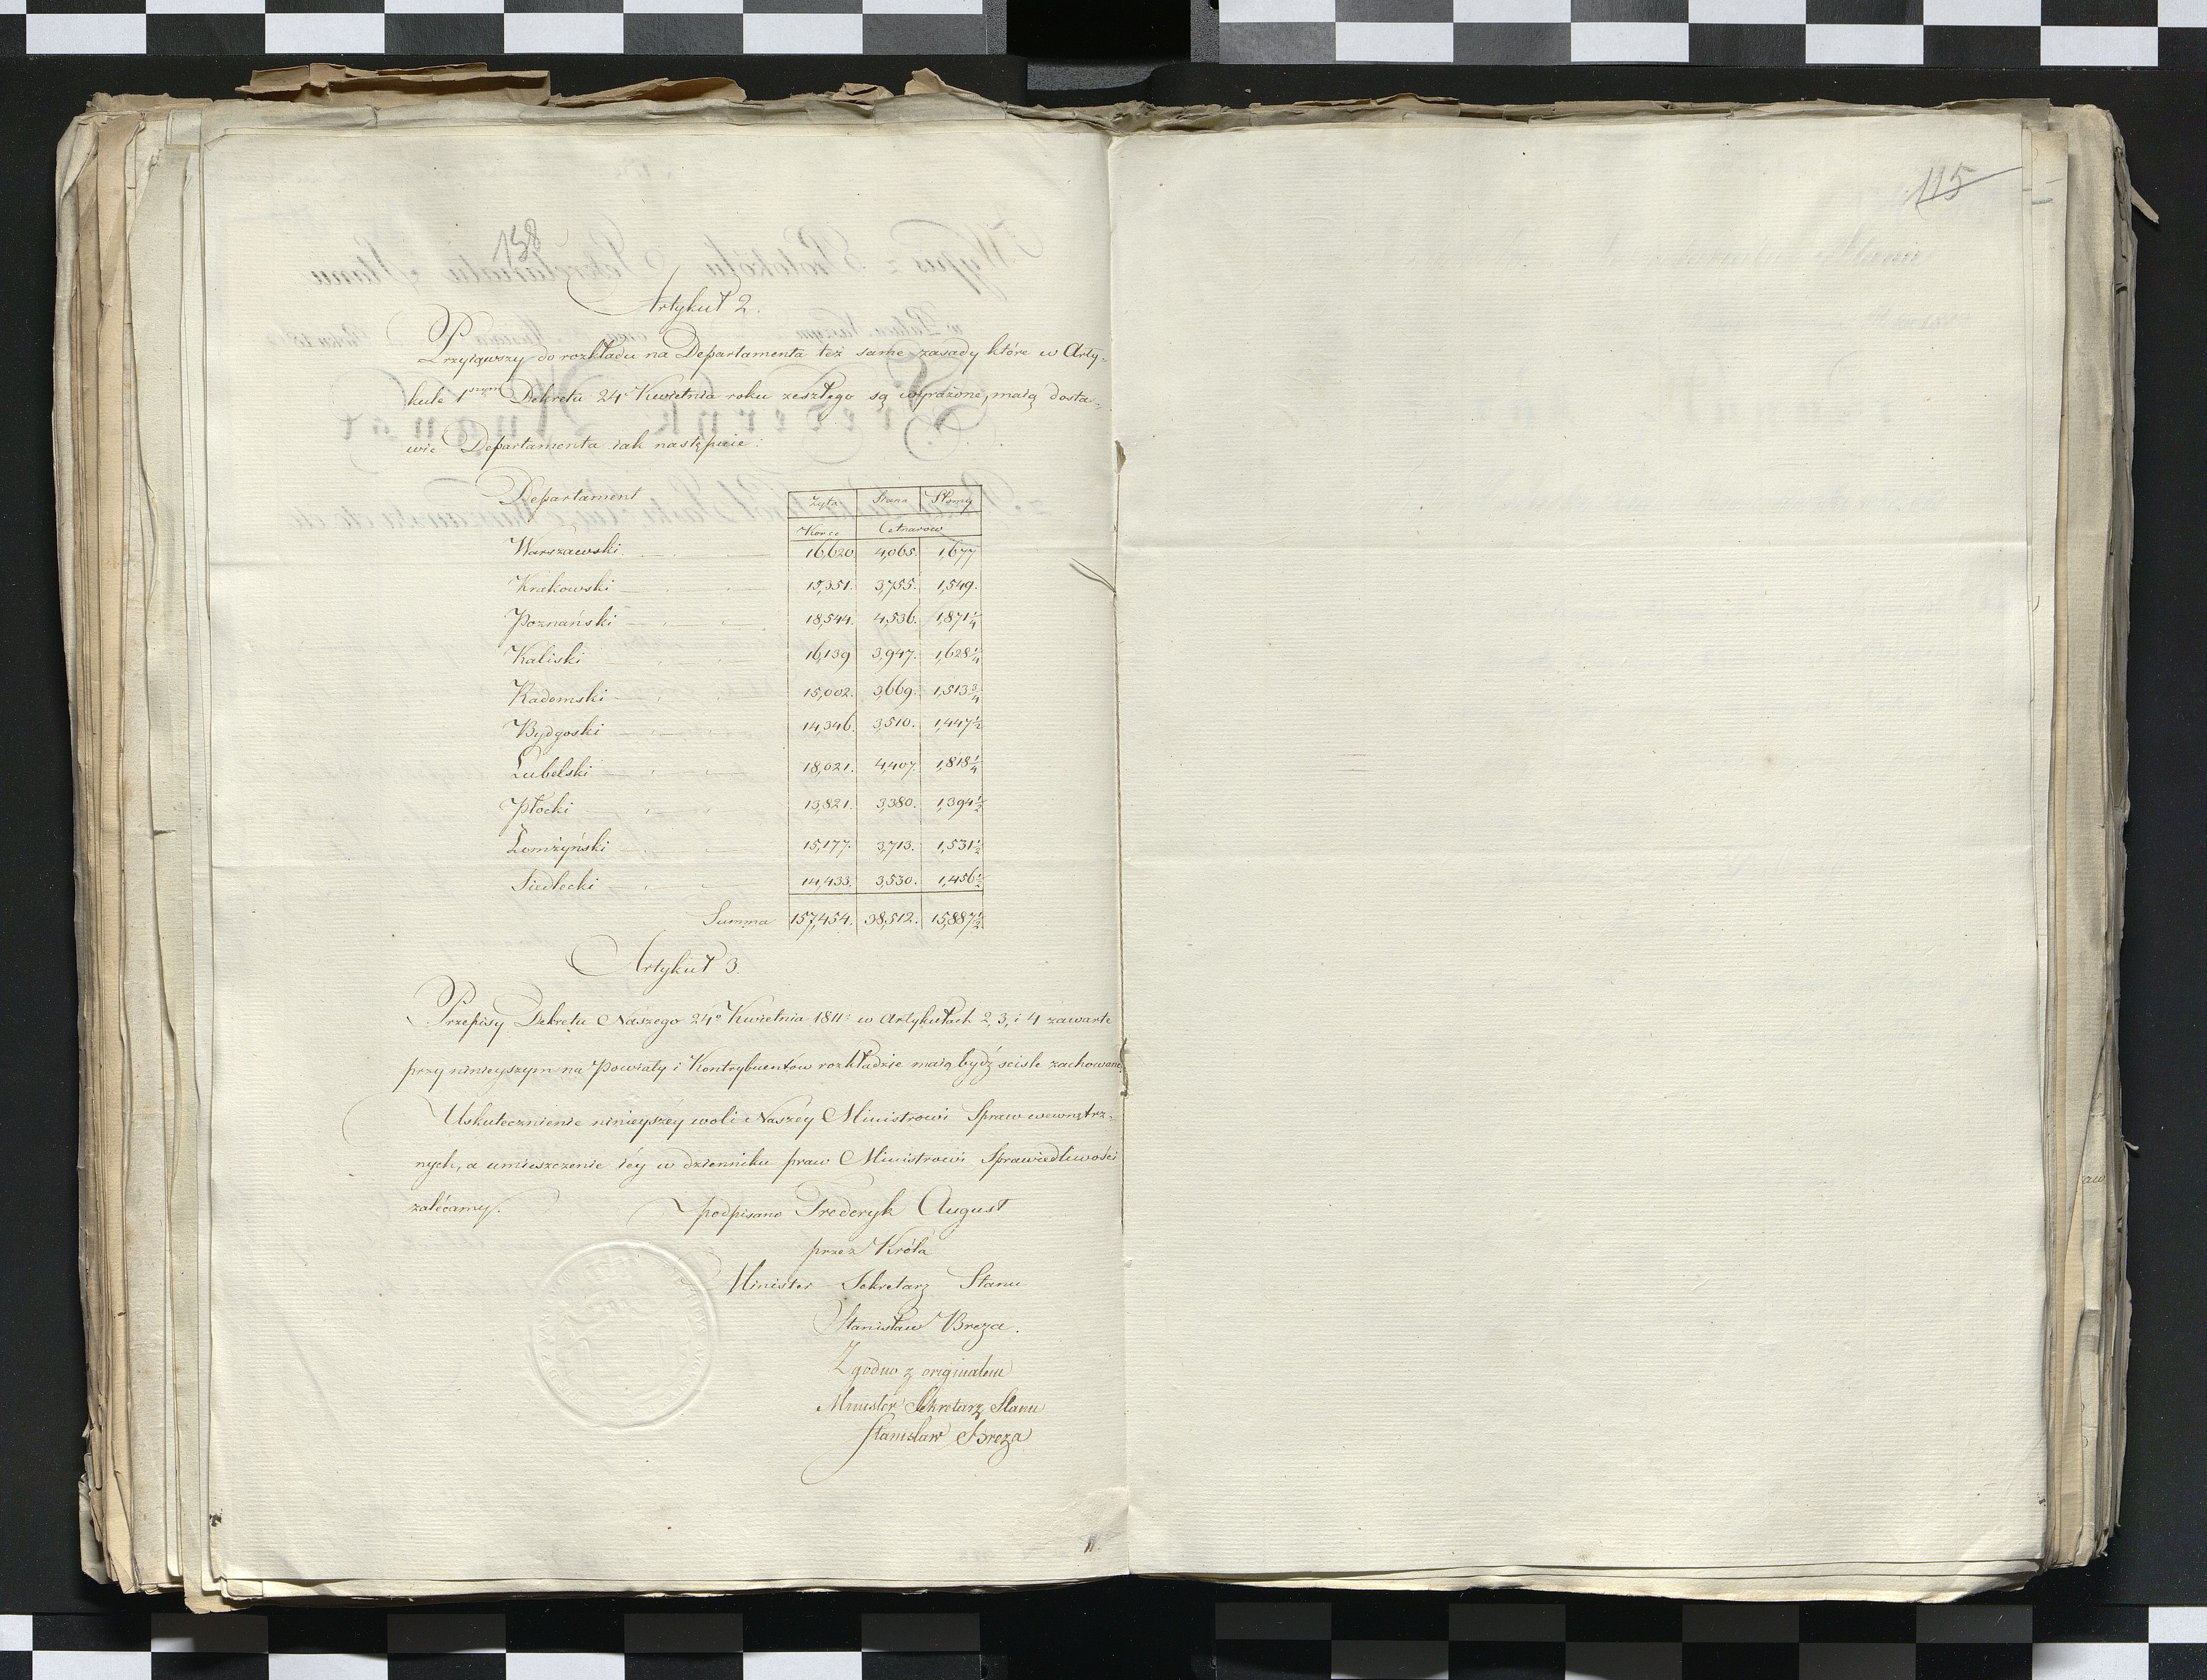 138
Artykuł 2.
Przyiąwszy do rozkładu na Departamenta też same zasady które w Arty-
kule 1szym Dekretu 24º Kwietnia roku zeszłego są wyrażone, maią dosta-
wić Departamenta iak następuie:
Departament Żyta Siana Słomy
Korce Cetnarow
Warszawski 16,620. 4,065. 1,677
Krakowski 15,351. 3,755. 1,549.
Poznański 18,544. 4,536. 1,871 1/4
Kaliski 16,139 3,947. 1,628 1/4
Radomski 15,002. 3,669. 1,513 3/4
Bydgoski 14,346. 3,510. 1,447 1/2
Lubelski 18,021. 4,407. 1,818 1/4
Płocki 13,821. 3,380. 1,394 1/2
Łomżyński 15,177. 3,713. 1,531 1/2
Siedlecki 14,433. 3,530. 1,456 1/2
Summa 157,454. 38,512. 15,887 1/2
Artykuł 3.
Przepisy Dekretu Naszego 24º Kwietnia 1811º w Artykułach 2, 3, i 4 zawarte
przy ninieyszym na Powiaty i Kontrybuentow rozkładzie maią bydź scisle zachowane.
Uskutecznienie ninieyszéy woli Naszéy Ministrowi Spraw wewnętrz-
nych, a umieszczenie iéy w dzienniku praw Ministrowi Sprawiedliwości
zalécamy.
podpisano Frederyk August
przez Króla
Minister Sekretarz Stanu
Stanisław Breza.
Zgodno z originałem
Minister Sekretarz Stanu
Stanisław Breza
115